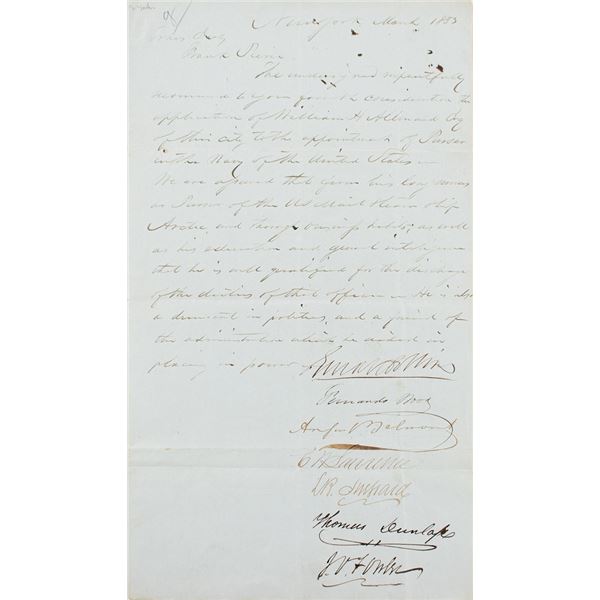 New York March 1853
Frank Pierce
The undersigned respectfully
recommend to your favorable consideration the
application of William H Allen Esq
of this city to the appointment of Purser
in the Navy of the United States
We are assured that from his long services
as Purser of the US Mail Steam Ship
Arctic, and thorough business habits, as well
as his education and general intelligence
that he is well qualified for the discharge
of the duties of that office He is also
a democrat in politics, and a friend of
the administration which he aided in
placing in power
Fernando Wood
August Belmont
C W Lawrence
L.R. Shepard
Thomas Dunlap
J.V. Fowler